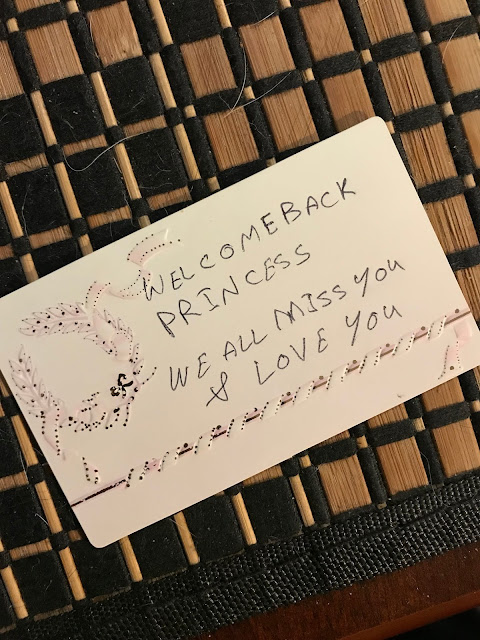 WELCOMEBACK
PRINCESS
WE ALL MISS YOU
& LOVE YOU